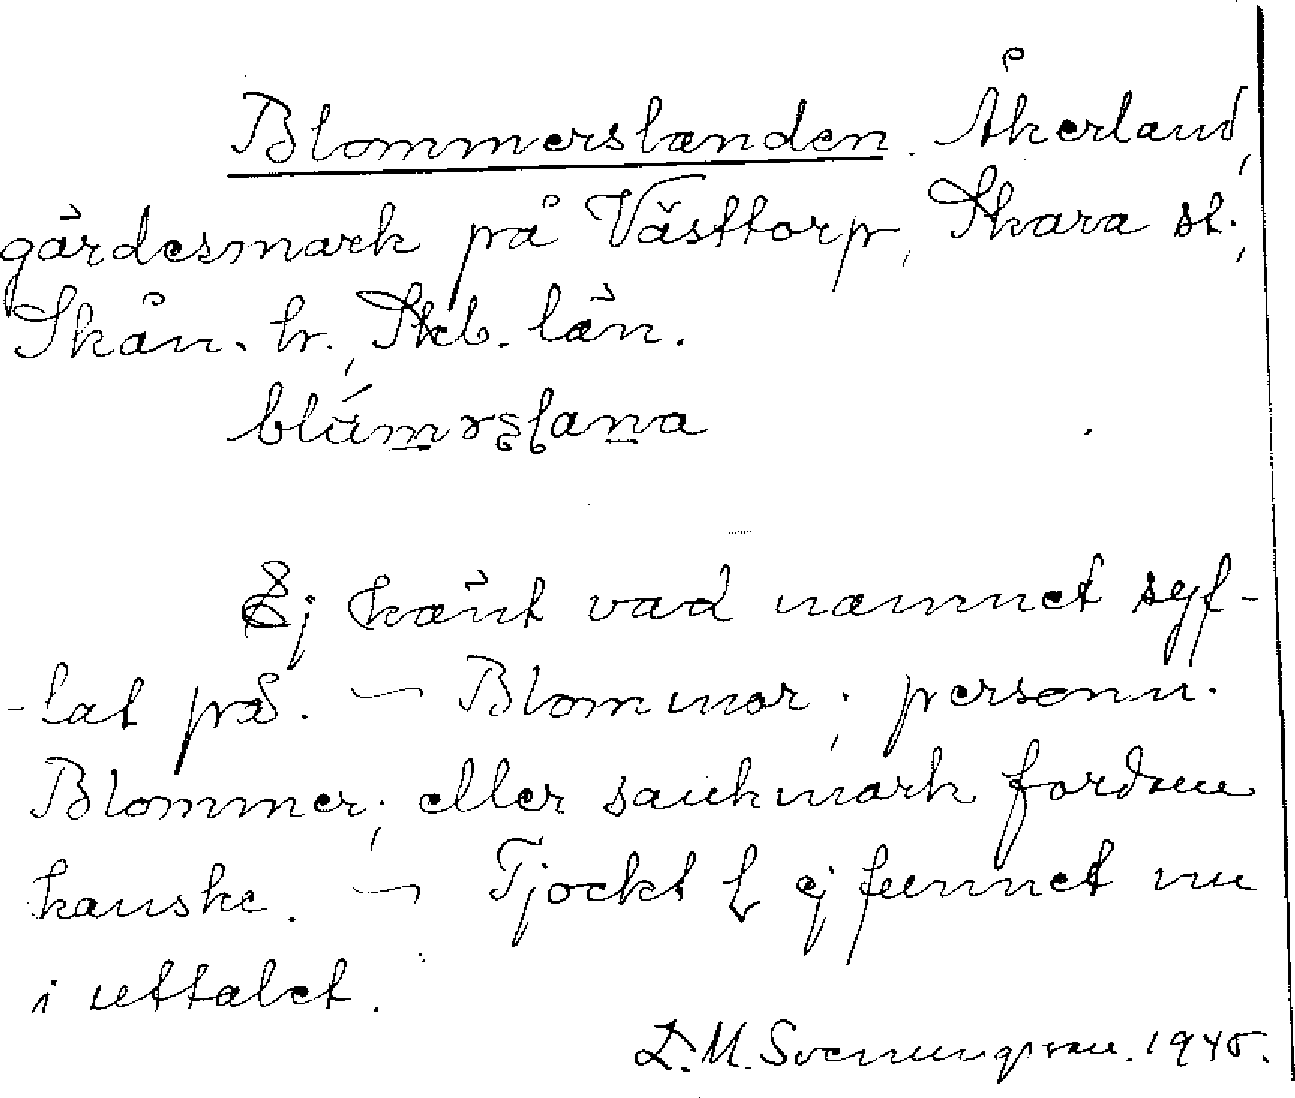 Blommerslanden. Åkerland,
gärdesmark på Västtorp, Skara st.,
Skån. hr., Skb. län.
Ej känt vad namnet syf-
-tat på. — Blommor; personn.
Blommer; eller sankmark fordom
kanske. — Tjockt l ej funnet nu
i uttalet.
D.M. Svenungsson. 1945.